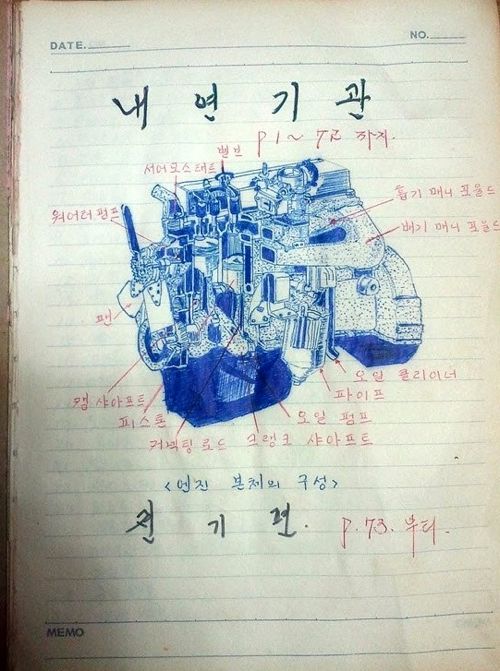 DATE.
NO.
내 연 기 관
P 1 ~ 72 까지.
밸브
서어모스태트
흡기 매니 포울드
워어터 펌프
배기 매니 포울드
팬
오일 클리이너
캠 샤아프트
파이프
피스톤
오일 펌프
커넥팅 로드
크랭크 샤아프트
<엔진 본체의 구성>
전 기 편.
P. 73. 부터.
MEMO